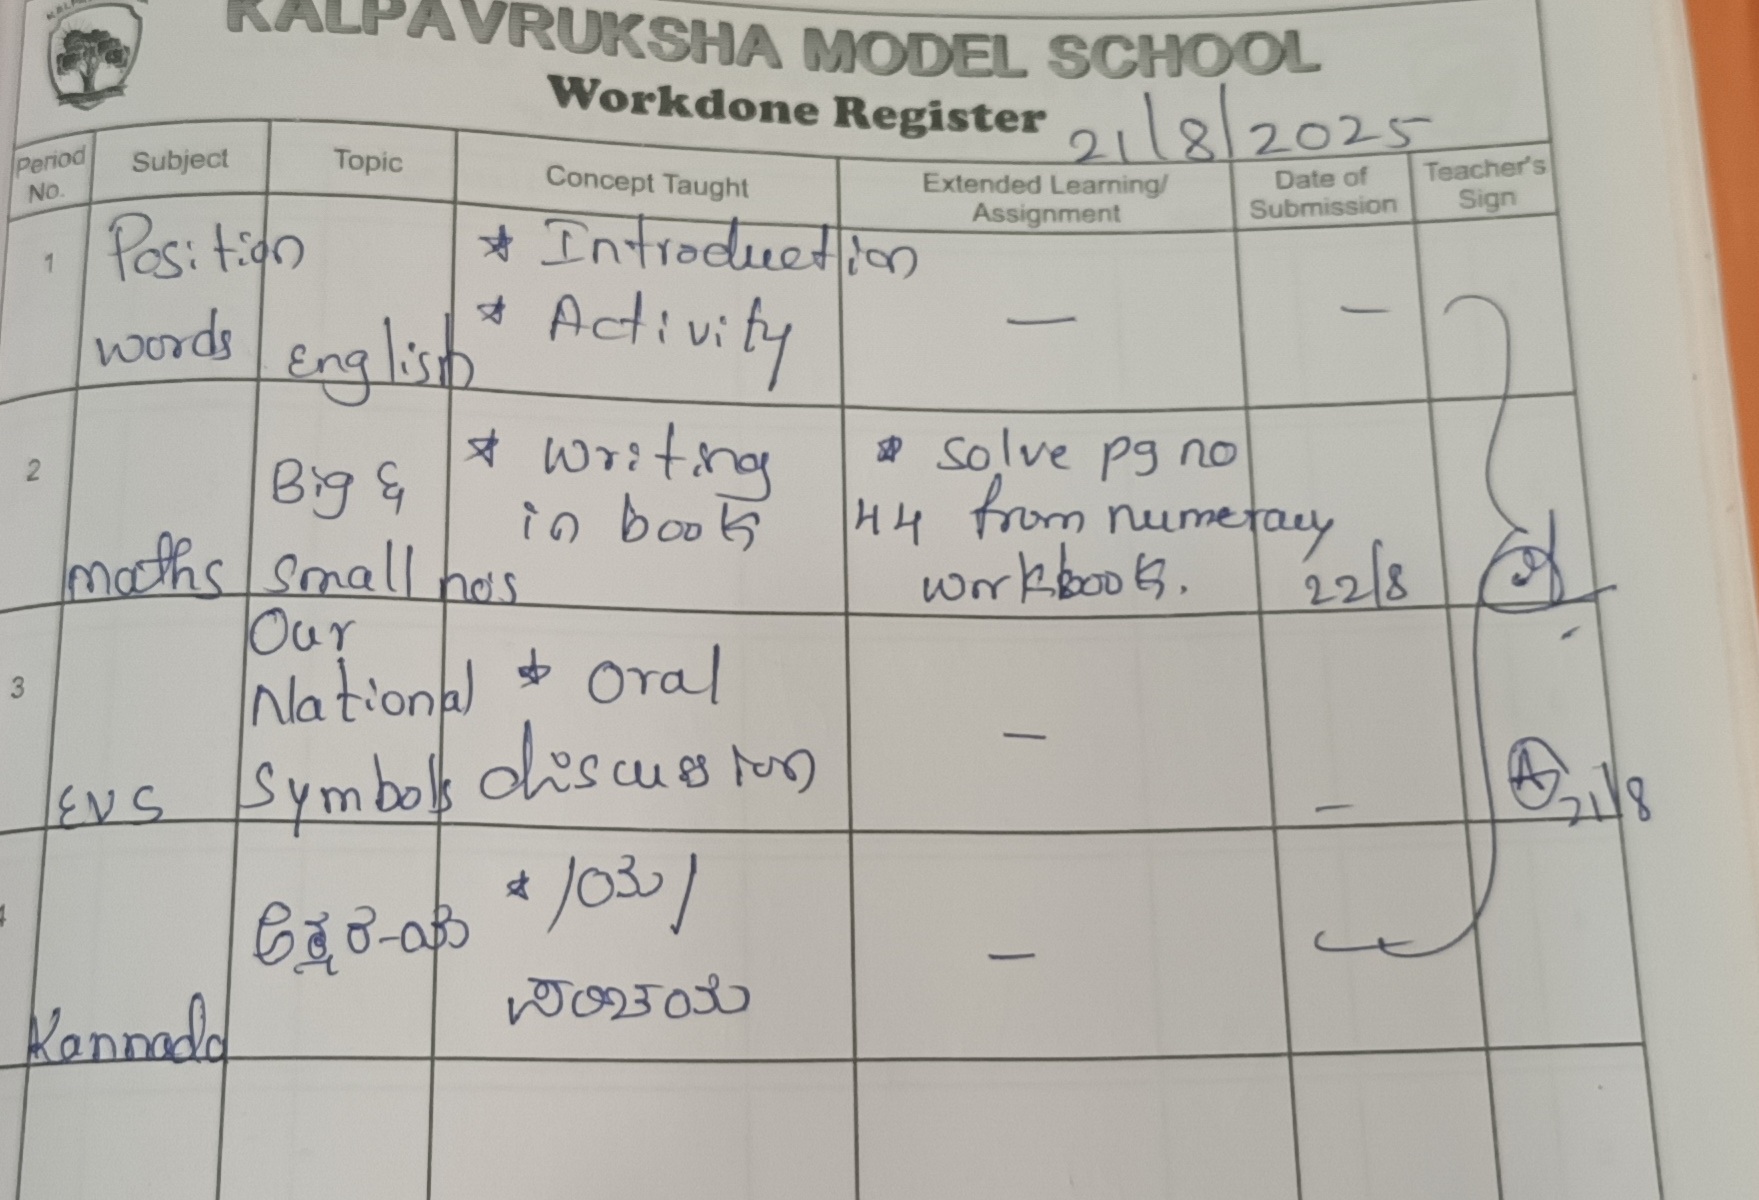 KALPAVRUKSHA MODEL SCHOOL
Workdone Register 21/8/2025
Period No. Subject Topic Concept Taught Extended Learning/ Assignment Date of Submission Teacher's Sign
1 Position * Introduction
words English * Activity — —
2 Big & * Writing * solve pg no
in book 44 from numeracy
maths small no's workbook. 22/8
Our
3 National * Oral
EVS Symbols discussion — —
21/8
ಅಕ್ಷರ-ಯ * /ಯ/
ಪರಿಚಯ —
Kannada